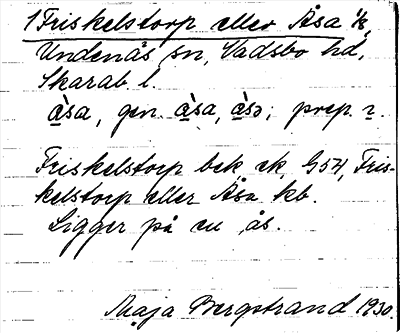 1 Friskelstorp eller Åsa 1/8,
Undenäs sn, Vadsbo hd,
Skarab. l.
àsa, gen. àsa, àsə; prep.
Friskelstorp bek ek, G 54, Fris-
kelstorp eller Åsa kb.
Ligger på en ås.
Maja Bergstrand 1930.